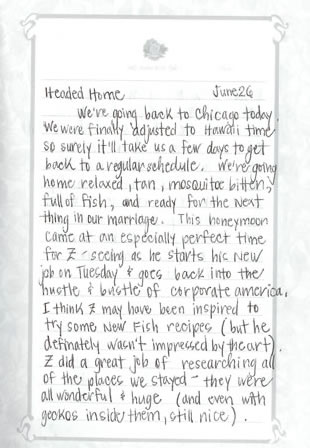 Headed Home June 26
We're going back to Chicago today.
We were finally adjusted to Hawaii time
so surely it'll take us a few days to get
back to a regular schedule. We're going
home relaxed, tan, mosquitoe bitten,
full of fish, and ready for the next
thing in our marriage. This honeymoon
came at an especially perfect time
for Z - seeing as he starts his new
job on Tuesday & goes back into the
hustle & bustle of corporate america.
I think Z may have been inspired to
try some new fish recipes (but he
definately wasn't impressed by the art).
Z did a great job of researching all
of the places we stayed - they were
all wonderful & huge (and even with
geckos inside them, still nice).